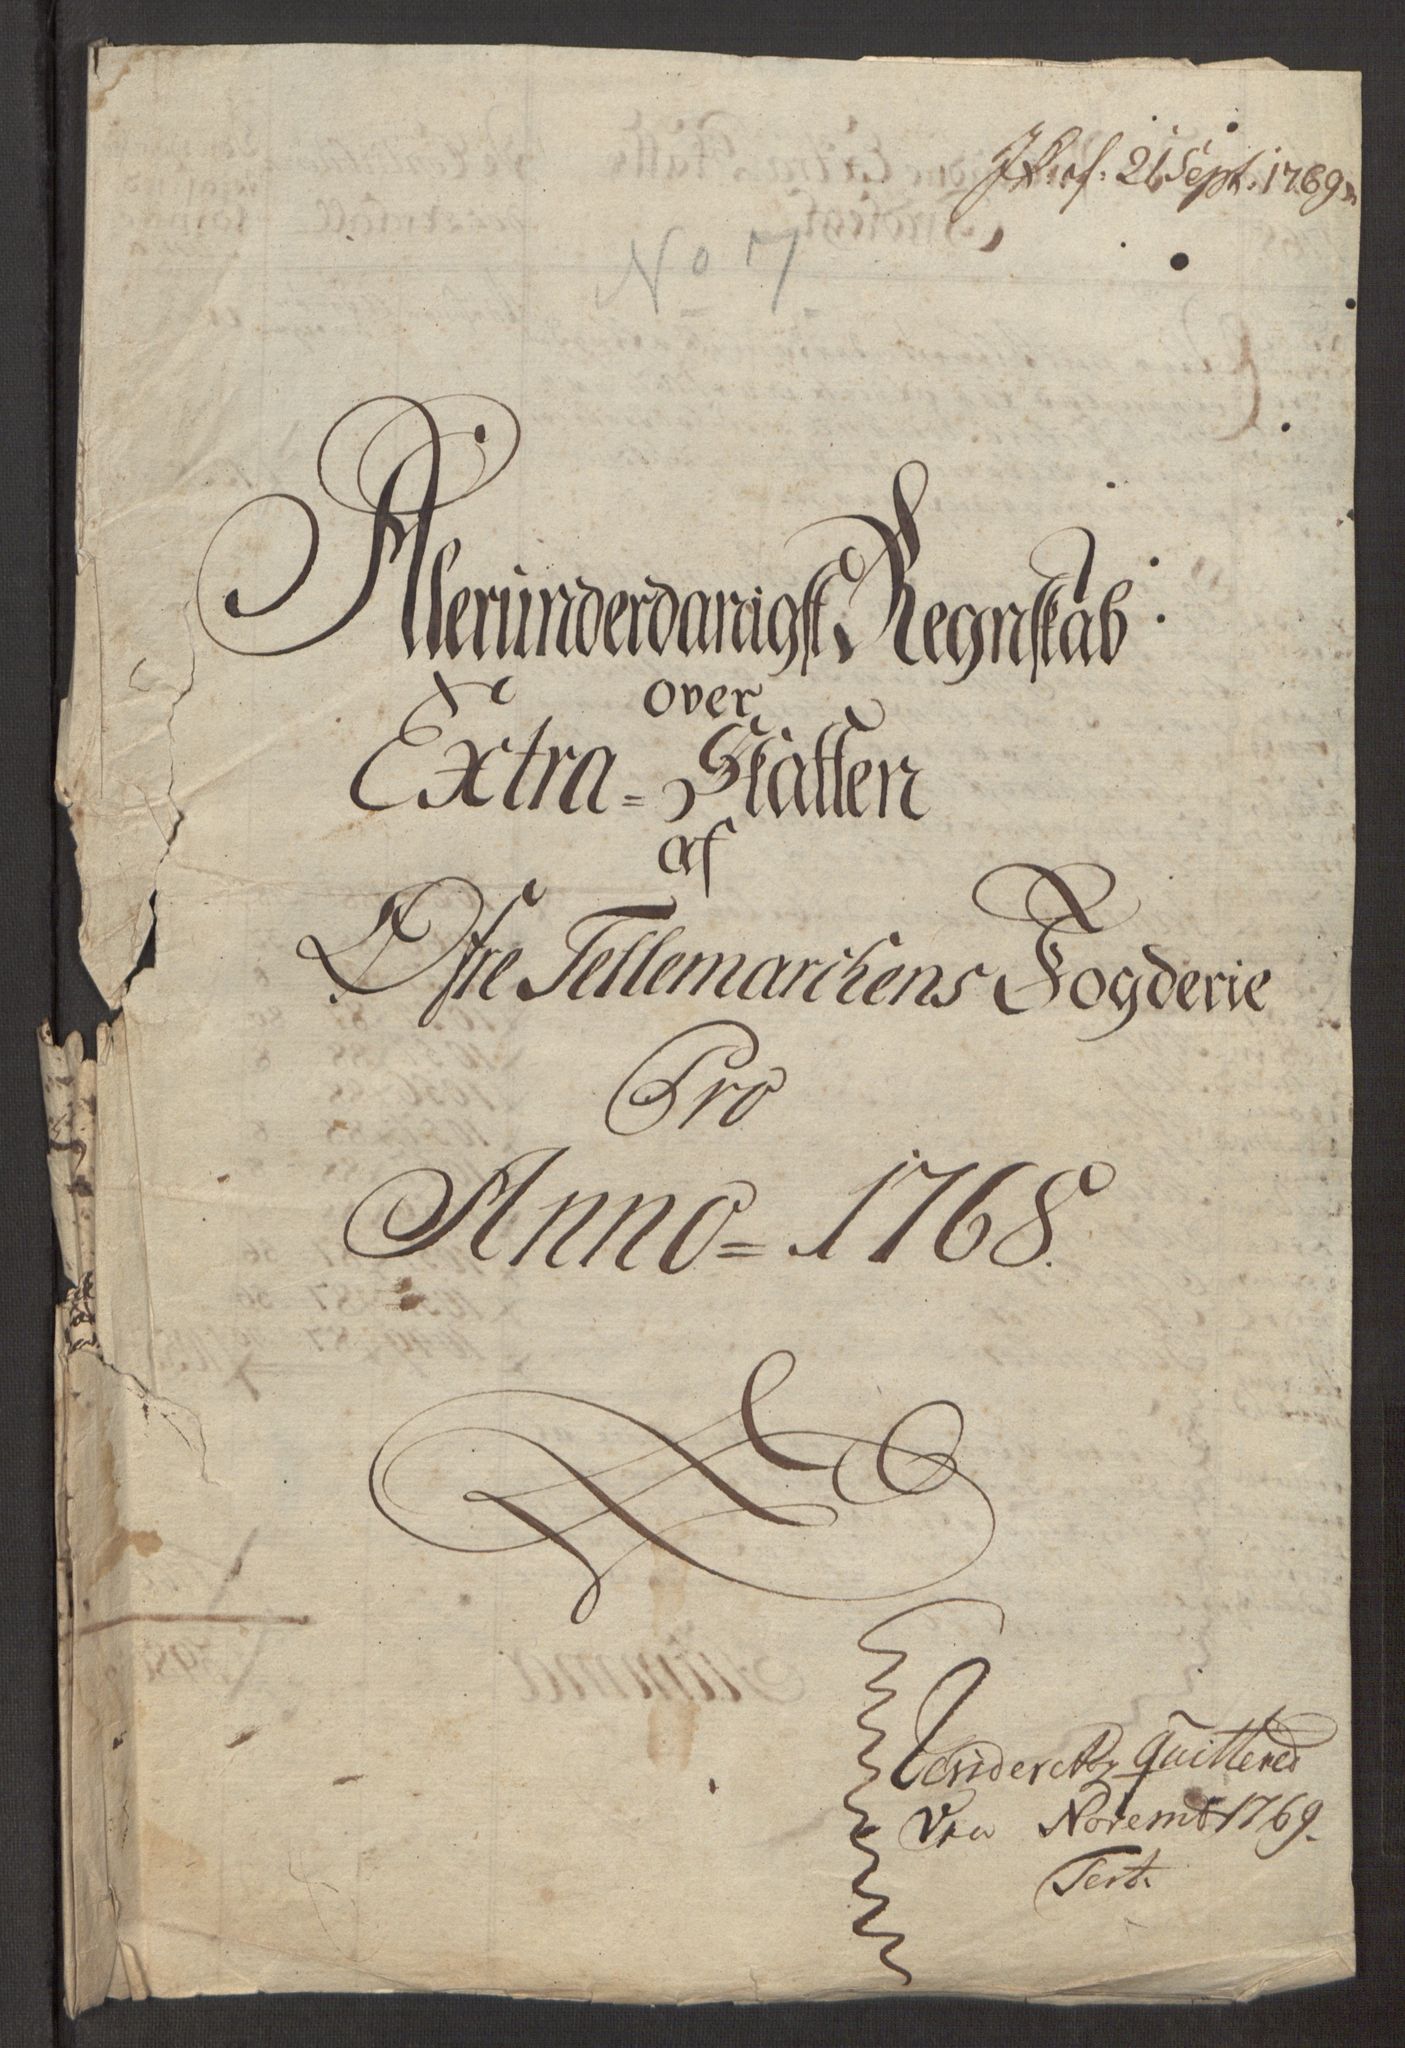 21 Sept. 1769
No 7
Allerunderdanigst Regnskab
over
Extra = Skatten
af
Øfre Tellemarckens Fogderie
Pro
Anno = 1768.
Quittered
Novemb 1769.
Test.
Summa